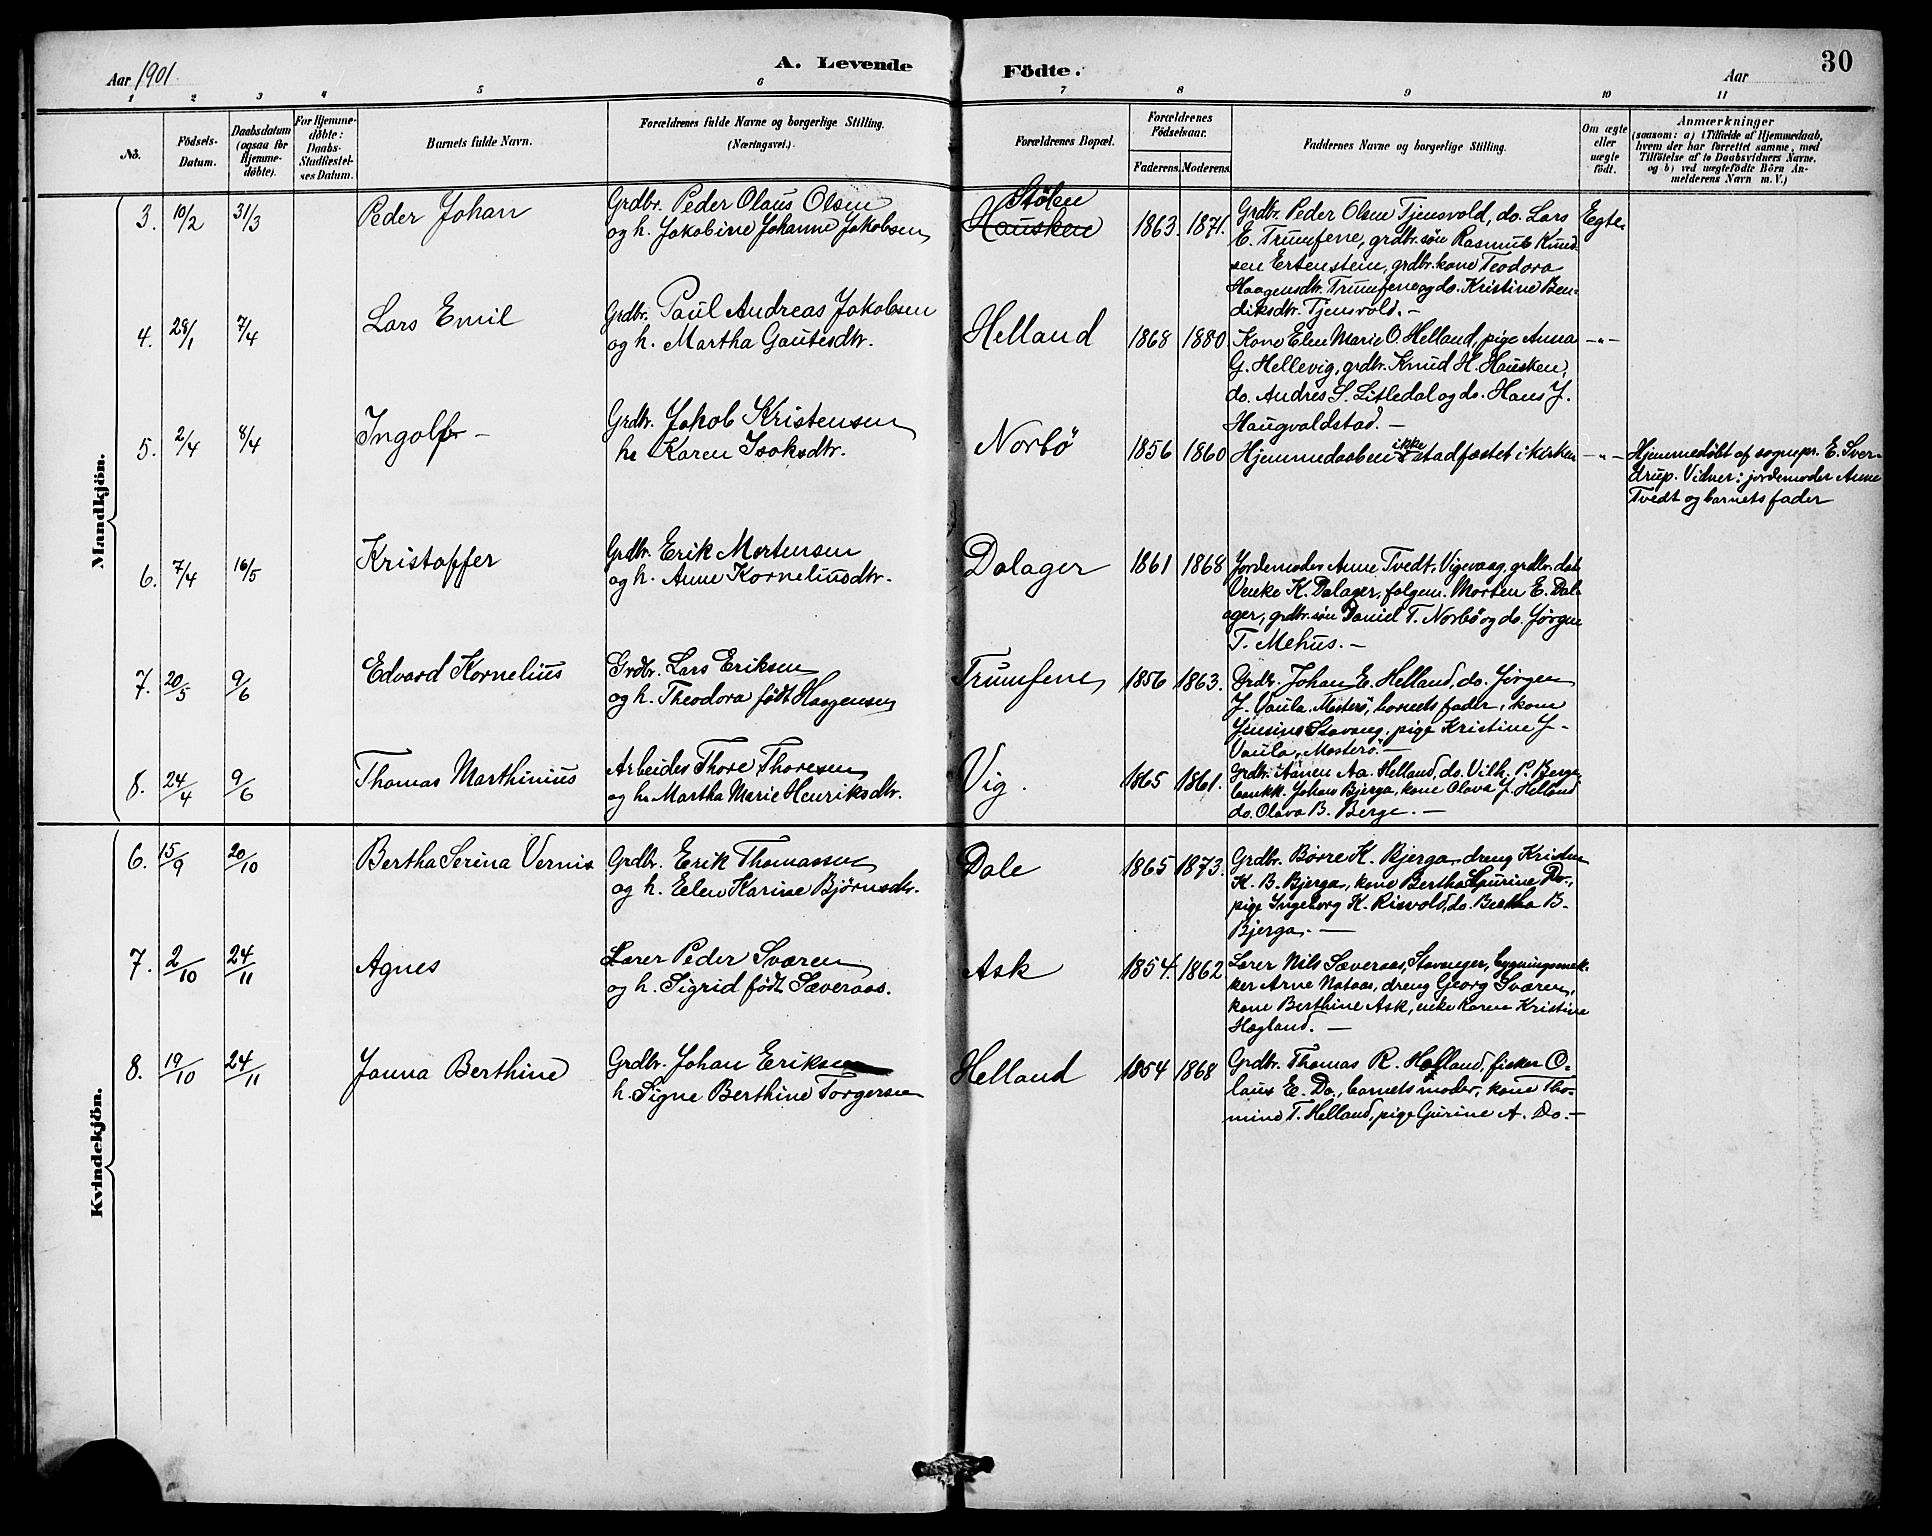 Aar 1901 A. Levende Födte. Aar 30
1 2 3 4 5 6 7 8 9 10 11
No. Födsels-Datum. Daabsdatum (ogsaa for Hjemme-døbte). For Hjemme-døbte: Daabs-Stadfæstel-ses Datum. Barnets fulde Navn. Forældrenes fulde Navne og borgerlige Stilling. (Næringsvei.) Forældrenes Bopæl. Forældrenes Födselsaar. Faderens. Moderens. Faddernes Navne og borgerlige Stilling. Om ægte eller uægte födt. Anmærkninger (saasom: a) i Tilfælde af Hjemmedaab, hvem der har forrettet samme, med Tilföielse af to Daabsvidners Navne, og b) ved uægtefödte Börn An-melderens Navn m. V.)
Mandkjön.
3. 10/2 31/3 Peder Johan Grdbr. Peder Olaus Olsen Stølen
og h. Jakobine Johanne Jakobsen Hausken 1863. 1871. Grdbr. Peder Olsen Tjensvold, do. Lars Egte.
E. Trumfene, grdbr. søn Rasmus Knud-
sen Ertenstein, grdbr. kone Teodora
Haagensdtr. Trumfene og do. Kristine Ben-
diksdtr. Tjensvold. –
4. 28/1 7/4 Lars Emil Grdbr. Paul Andreas Jakobsen
og h. Martha Gautesdtr. Helland 1868 1880 Kone Elen Marie O. Helland, pige Anna –"–
G. Hellevig, grdbr. Knud H. Hausken,
do. Andres S. Litledal og do. Hans J.
Haugvaldstad. –
5. 2/4 8/4 Ingolf – Grdbr. Jakob Kristensen
h. Karen Isaksdtr. Norbö 1856 1860 Hjemmedaaben ikke stadfæstet i kirken –"– Hjemmedøbt af sognepr. E. Sver-
drup. Vidner: jordemoder Anne
Tvedt og barnets fader
6. 7/4 16/5 Kristoffer Grdbr. Erik Mortensen
og h. Anne Korneliusdtr. Dalager 1861 1868 Jordemoder Anne Tvedt, Vigevaag, grdbr. dat.
Venke K. Dalager, folgem. Morten E. Dal-
ager, grdbr. søn Daniel T. Norbö og do. Jørgen
T. Mehus. –
7. 20/5 9/6 Edvard Kornelius Grdbr. Lars Eriksen
og h. Theodora født Haagensen Trumfene 1856 1863. Grdbr. Johan E. Helland, do. Jørgen
J. Vaula Mosterö, barnets fader, kone
Jensine Stavang, pige Kristine J.
Vaula, Mosterö. –
8. 24/4 9/6 Thomas Marthinius Arbeider Thore Thoresen
og h. Martha Marie Henriksdtr. Vig. 1865 1861. Grdbr. Aanen Aa. Helland, do. Vilh. P. Berge,
Johan Bjerga, kone Olava J. Helland
do. Olava B. Berge. –
Kvindekjön.
6. 15/9 20/10 Bertha Serina Vernis Grdbr. Erik Thomassen
og h. Elen Karine Bjørnsdtr. Dale 1865 1873. Grdbr. Børre K. Bjerga, dreng Kristen
K. B. Bjerga, kone Bertha Do.,
pige Ingeborg K. Risvold, do. Bertha B.
Bjerga. –
7. 2/10 24/11 Agnes Lærer Peder Sværen
og h. Sigrid født Sæveraas. Ask 1854. 1862. Lærer Nils Sæveraas, Stavanger, bygningssnek-
ker Arne Nataas, dreng Georg Sværen,
kone Berthine Ask, enke Karen Kristine
Hægland. –
8. 19/10 24/11 Janna Berthine Grdbr. Johan Eriksen
h. Signe Berthine Torgersen Helland 1854 1868 Grdbr. Thomas R. Helland, fisker O-
laus E. Do., barnets moder, kone Tho-
mine T. Helland, pige Gurine A. Do. –